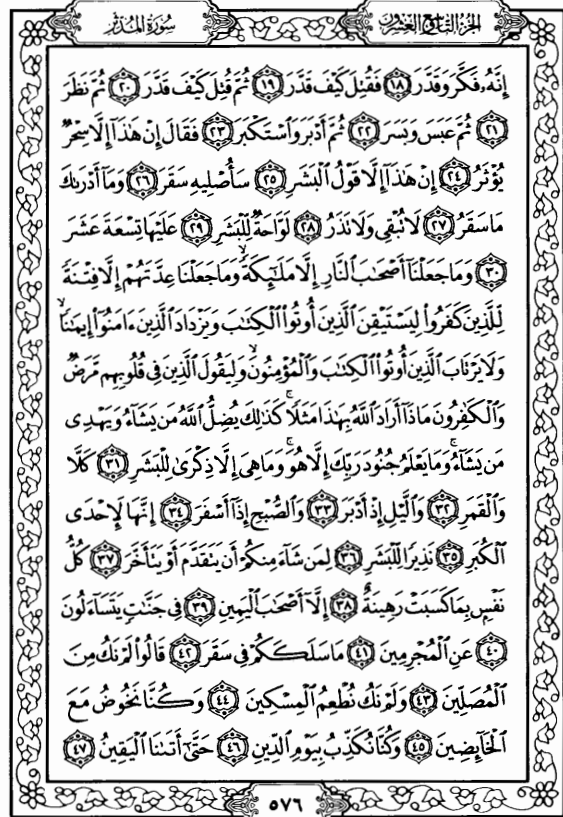 الجزء التاسع والعشرون
سورة المدثر
إِنَّهُۥ فَكَّرَ وَقَدَّرَ ١٨ فَقُتِلَ كَيْفَ قَدَّرَ ١٩ ثُمَّ قُتِلَ كَيْفَ قَدَّرَ ٢٠ ثُمَّ نَظَرَ
٢١ ثُمَّ عَبَسَ وَبَسَرَ ٢٢ ثُمَّ أَدْبَرَ وَٱسْتَكْبَرَ ٢٣ فَقَالَ إِنْ هَٰذَآ إِلَّا سِحْرٌ
يُؤْثَرُ ٢٤ إِنْ هَٰذَآ إِلَّا قَوْلُ ٱلْبَشَرِ ٢٥ سَأُصْلِيهِ سَقَرَ ٢٦ وَمَآ أَدْرَىٰكَ
مَا سَقَرُ ٢٧ لَا تُبْقِى وَلَا تَذَرُ ٢٨ لَوَّاحَةٌ لِّلْبَشَرِ ٢٩ عَلَيْهَا تِسْعَةَ عَشَرَ
٣٠ وَمَا جَعَلْنَآ أَصْحَٰبَ ٱلنَّارِ إِلَّا مَلَٰٓئِكَةًۙ وَمَا جَعَلْنَا عِدَّتَهُمْ إِلَّا فِتْنَةً
لِّلَّذِينَ كَفَرُوا۟ لِيَسْتَيْقِنَ ٱلَّذِينَ أُوتُوا۟ ٱلْكِتَٰبَ وَيَزْدَادَ ٱلَّذِينَ ءَامَنُوٓا۟ إِيمَٰنًاۙ
وَلَا يَرْتَابَ ٱلَّذِينَ أُوتُوا۟ ٱلْكِتَٰبَ وَٱلْمُؤْمِنُونَۙ وَلِيَقُولَ ٱلَّذِينَ فِى قُلُوبِهِم مَّرَضٌ
وَٱلْكَٰفِرُونَ مَاذَآ أَرَادَ ٱللَّهُ بِهَٰذَا مَثَلًاۚ كَذَٰلِكَ يُضِلُّ ٱللَّهُ مَن يَشَآءُ وَيَهْدِى
مَن يَشَآءُۚ وَمَا يَعْلَمُ جُنُودَ رَبِّكَ إِلَّا هُوَۚ وَمَا هِىَ إِلَّا ذِكْرَىٰ لِلْبَشَرِ ٣١ كَلَّا
وَٱلْقَمَرِ ٣٢ وَٱلَّيْلِ إِذْ أَدْبَرَ ٣٣ وَٱلصُّبْحِ إِذَآ أَسْفَرَ ٣٤ إِنَّهَا لَإِحْدَى
ٱلْكُبَرِ ٣٥ نَذِيرًا لِّلْبَشَرِ ٣٦ لِمَن شَآءَ مِنكُمْ أَن يَتَقَدَّمَ أَوْ يَتَأَخَّرَ ٣٧ كُلُّ
نَفْسٍۭ بِمَا كَسَبَتْ رَهِينَةٌ ٣٨ إِلَّآ أَصْحَٰبَ ٱلْيَمِينِ ٣٩ فِى جَنَّٰتٍ يَتَسَآءَلُونَ
٤٠ عَنِ ٱلْمُجْرِمِينَ ٤١ مَا سَلَكَكُمْ فِى سَقَرَ ٤٢ قَالُوا۟ لَمْ نَكُ مِنَ
ٱلْمُصَلِّينَ ٤٣ وَلَمْ نَكُ نُطْعِمُ ٱلْمِسْكِينَ ٤٤ وَكُنَّا نَخُوضُ مَعَ
ٱلْخَآئِضِينَ ٤٥ وَكُنَّا نُكَذِّبُ بِيَوْمِ ٱلدِّينِ ٤٦ حَتَّىٰٓ أَتَىٰنَا ٱلْيَقِينُ ٤٧
٥٧٦